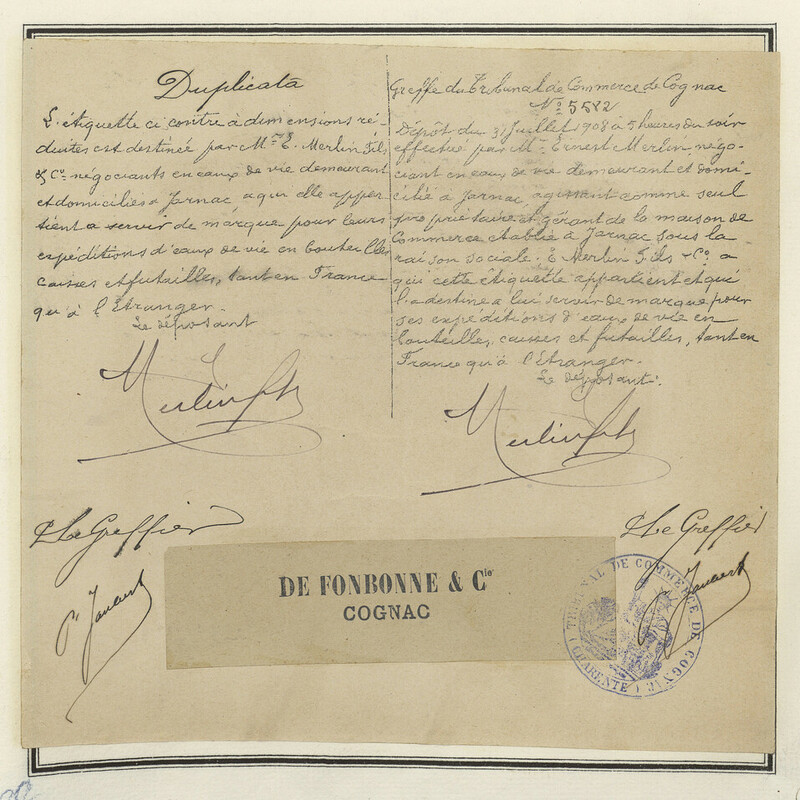 Duplicata
L'étiquette ci contre à dimensions ré-
duites est destinée par Mrs E. Merlin Fils
& Co négociants en eaux de vie demeurant
et domiciliés à Jarnac a qui elle appar
tient a servir de marque pour leurs
expéditions d'eaux de vie en bouteilles
caisses et futailles, tant en France
qu'à l'Etranger.
Le déposant
Merlin Fils
Le Greffier
Greffe du Tribunal de Commerce de Cognac
No 5582
Dépôt du 31 Juillet 1908 à 5 heures du soir
effectué par Mr Ernest Merlin négo-
ciant en eaux de vie demeurant et domi-
cilié à Jarnac, agissant comme seul
propriétaire et gérant de la maison de
Commerce établie à Jarnac sous la
raison sociale. E Merlin Fils & Co a
qui cette étiquette appartient et qui
l'a destine a lui servir de marque pour
ses expéditions d'eaux de vie en
bouteilles, caisses et futailles, tant en
France qu'à l'Etranger.
Le déposant.
Merlin Fils
Le Greffier
DE FONBONNE & Cie
COGNAC
TRIBUNAL DE COMMERCE DE COGNAC
(CHARENTE)